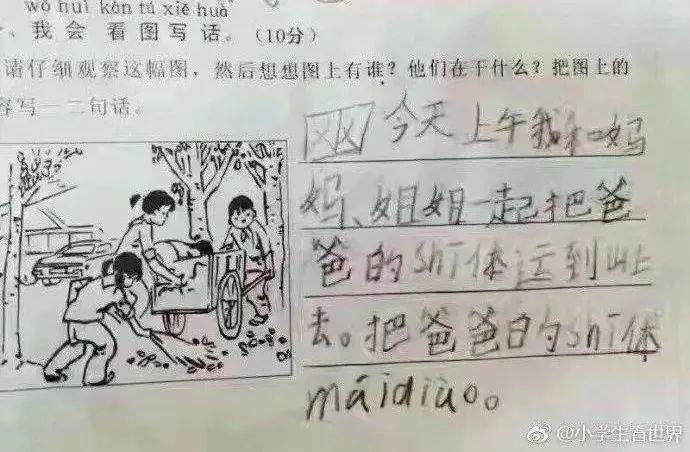 wǒ huì kàn tú xiě huà
、我 会 看 图 写 话。(10分)
请仔细观察这幅图，然后想想图上有谁？他们在干什么？把图上的
容写一二句话。
今天上午我和妈
妈、姐姐一起把爸
爸的shī体运到山上
去。把爸爸的shī体
máidiào。
@小学生看世界